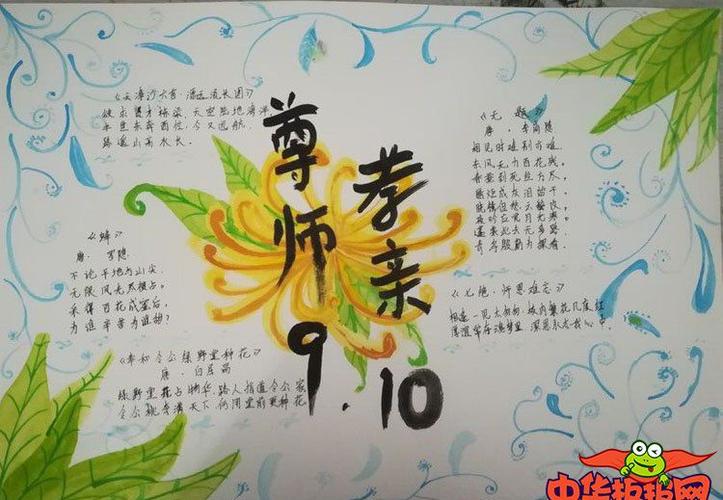 尊师
孝亲
9.10
《蜂》
唐．罗隐
不论平地与山尖
无限风光尽被占。
采得百花成蜜后
为谁辛苦为谁甜？
《奉和令公绿野堂种花》
唐．白居易
绿野堂花占物华．路人指道令公家
令公桃李满天下．何用堂前更种花
《无题》
唐．李商隐
相见时难别亦难．
东风无力百花残。
春蚕到死丝方尽．
蜡炬成灰泪始干．
晓镜但愁云鬓改．
夜吟应觉月光寒．
蓬莱此去无多路．
青鸟殷勤为探看．
《七绝．师恩难忘》
中华板报网